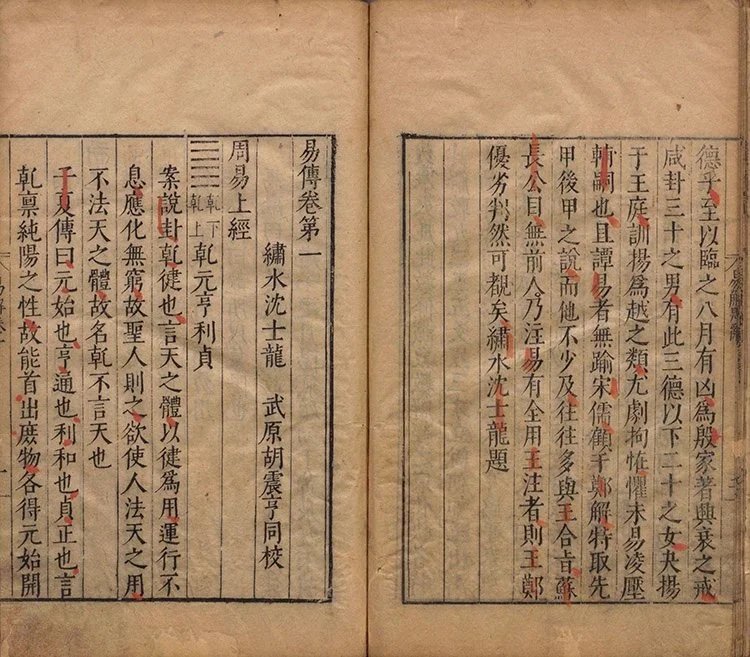 德乎至以臨之八月有凶爲殷家著興衰之戒
咸卦三十之男有此三德以下二十之女夬揚
于王庭訓揚爲越之類尤劇拘恠懼未易凌壓
輔嗣也且譚易者無踰宋儒顧于鄭解特取先
甲後甲之說而他不少及往往多與王合旨蘇
長公目無前人乃注易有全用王注者則王鄭
優劣判然可覩矣繡水沈士龍題
易傳卷第一
繡水沈士龍 武原胡震亨同校
周易上經
乾下
乾上
乾元亨利貞
案說卦乾健也言天之體以健爲用運行不
息應化無窮故聖人則之欲使人法天之用
不法天之體故名乾不言天也
子夏傳曰元始也亨通也利和也貞正也言
乾禀純陽之性故能首出庶物各得元始開